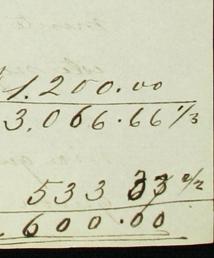 1.200.00
3.066.66⅔
533 33 ½
.600.00